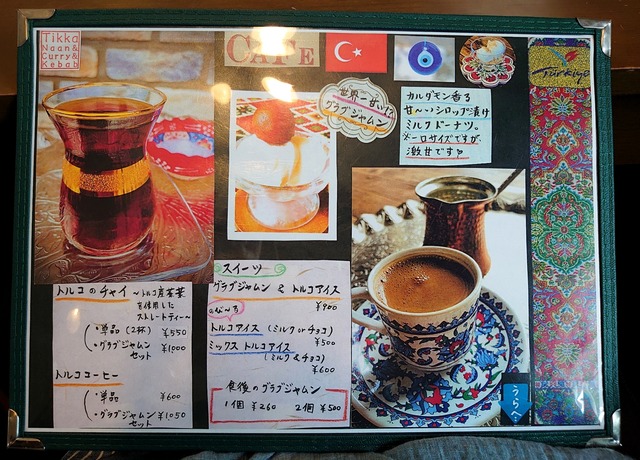 Tikka
Naan&
Curry&
Kebab
CAFE
Türkiye
世界一甘い!?
グラブジャムン
カルダモン香る
甘〜いシロップ漬け
ミルクドーナツ。
※一口サイズですが、
激甘です
トルコのチャイ 〜トルコ産茶葉
を使用した
ストレートティー〜
・単品(2杯) ¥550
・グラブジャムン ¥1000
セット
トルコーコーヒー
・単品 ¥600
・グラブジャムン ¥1050
セット
スイーツ
グラブジャムン & トルコアイス
¥900
のび〜る
トルコアイス (ミルク or チョコ)
¥500
ミックストルコアイス
(ミルク & チョコ)
¥600
食後のグラブジャムン
1個 ¥260 2個 ¥500
うらへ